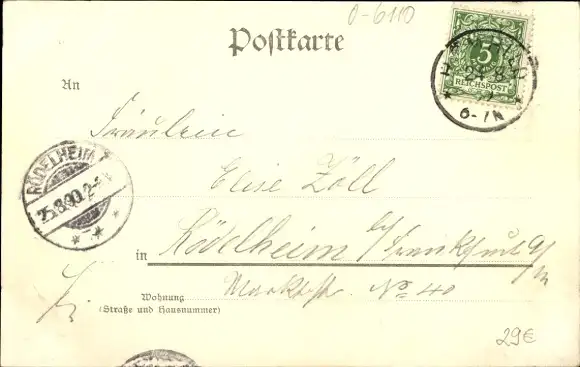 0-6110
Postkarte
5
REICHSPOST
24 8
6-7N
An
Fräulein
RÖDELHEIM
25.8.00.2-
Elise Zöll
in Rödelheim b/Frankfurt a/M
Marktstr. No 40
Wohnung
(Straße und Hausnummer)
29€